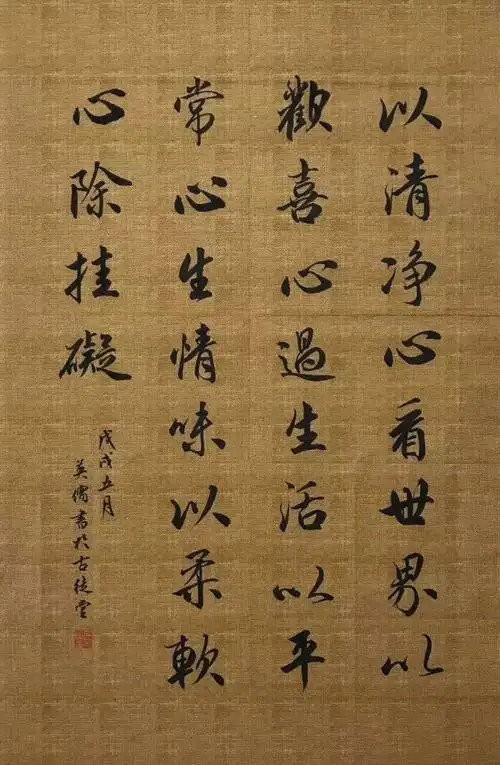 以清净心看世界以
歡喜心過生活以平
常心生情味以柔軟
心除挂礙
戊戌五月
英儒書於古徒堂